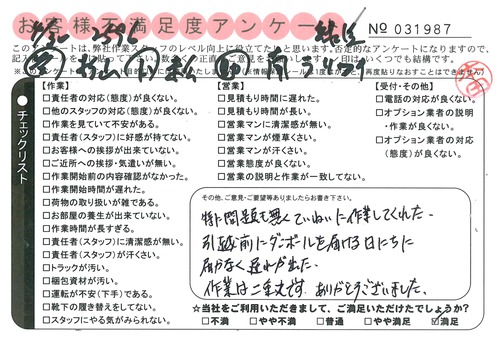 お客様不満足度アンケート
No 031987
このアンケートは、弊社作業スタッフのレベル向上に役立てたいと思います。否定的なアンケートになりますので、
チェックリスト
【作業】
□責任者の対応(態度)が良くない。
□他のスタッフの対応(態度)が良くない。
□作業を見ていて不安がある。
□責任者(スタッフ)に好感が持てない。
□お客様への挨拶が出来ていない。
□ご近所への挨拶・気遣いが無い。
□作業開始前の内容確認がなかった。
□作業開始時間が遅れた。
□荷物の取り扱いが雑である。
□お部屋の養生が出来ていない。
□作業時間が長すぎる。
□責任者(スタッフ)に清潔感が無い。
□責任者(スタッフ)が汗くさい。
□トラックが汚い。
□梱包資材が汚い。
□運転が不安(下手)である。
□靴下の履き替えをしてない。
□スタッフにやる気がみられない。
【営業】
□見積もり時間に遅れた。
□見積もり時間が長い。
□営業マンに清潔感が無い。
□営業マンが煙草くさい。
□営業マンが汗くさい。
□営業態度が良くない。
□営業の説明と作業が一致してない。
【受付・その他】
□電話の対応が良くない。
□オプション業者の説明
・作業が良くない。
□オプション業者の対応
(態度)が良くない。
その他、ご意見・ご要望等ありましたらお書き下さい。
特に問題も無くていねいに作業してくれた。
引越前にダンボールを届ける日にちに
届かなく遅れが出た。
作業は二重丸です。ありがとうございました。
☆当社をご利用いただきまして、ご満足いただけたでしょうか?
□不満 □やや不満 □普通 □やや満足 ☑満足